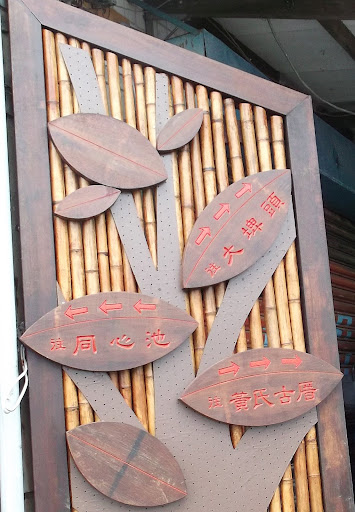 往大埤頭
往同心池
往黃氏古厝